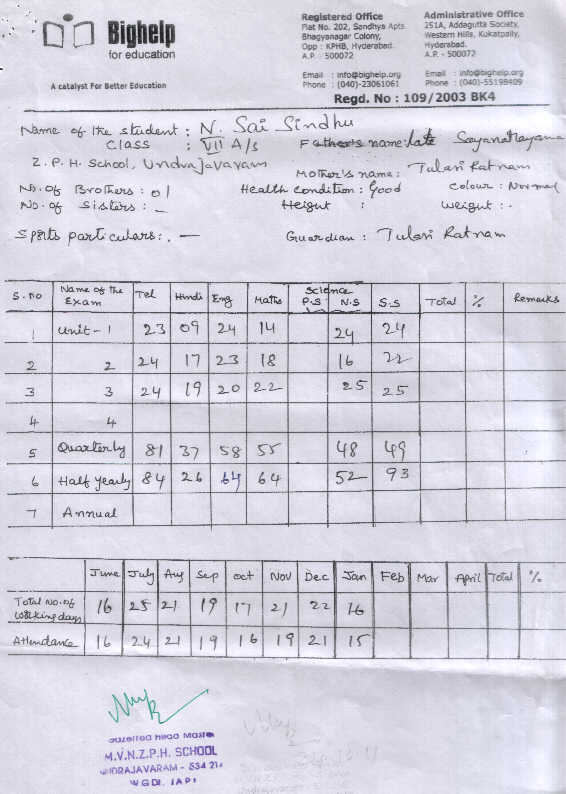 Bighelp
for education
A catalyst For Better Education
Registered Office
Flat No. 202, Sandhya Apts
Bhagyanagar Colony,
Opp : KPHB, Hyderabad.
A.P. - 500072
Email : info@bighelp.org
Phone : (040)-23061061
Administrative Office
251A, Addagutta Society,
Western Hills, Kukatpally,
Hyderabad.
A.P. - 500072
Email : info@bighelp.org
Phone : (040)-55198409
Regd. No : 109/2003 BK4
Name of the student : N. Sai Sindhu
Class : VII A/s Father's name: late Sayanarayana
Z. P. H. School, Undrajavaram Mother's name: Tulasi Ratnam
No. of Brothers : 01 Health Condition : Good Colour : Normal
No. of Sisters : - Height : Weight : -
Sports particulars : - Guardian : Tulasi Ratnam
S.no Name of the Exam Tel Hindi Eng Maths Science P.S N.S S.S Total % Remarks
1 Unit - 1 23 09 24 14 24 24
2 2 24 17 23 18 16 22
3 3 24 19 20 22 25 25
4 4
5 Quarterly 81 37 58 55 48 49
6 Half Yearly 84 26 64 64 52 93
7 Annual
June July Aug Sep Oct Nov Dec Jan Feb Mar April Total %
Total No. of Working days 16 25 21 19 17 21 22 16
Attendance 16 24 21 19 16 19 21 15
Gazetted Head Master
M.V.N.Z.P.H. SCHOOL
UNDRAJAVARAM - 534 216
W.GDt. (AP)